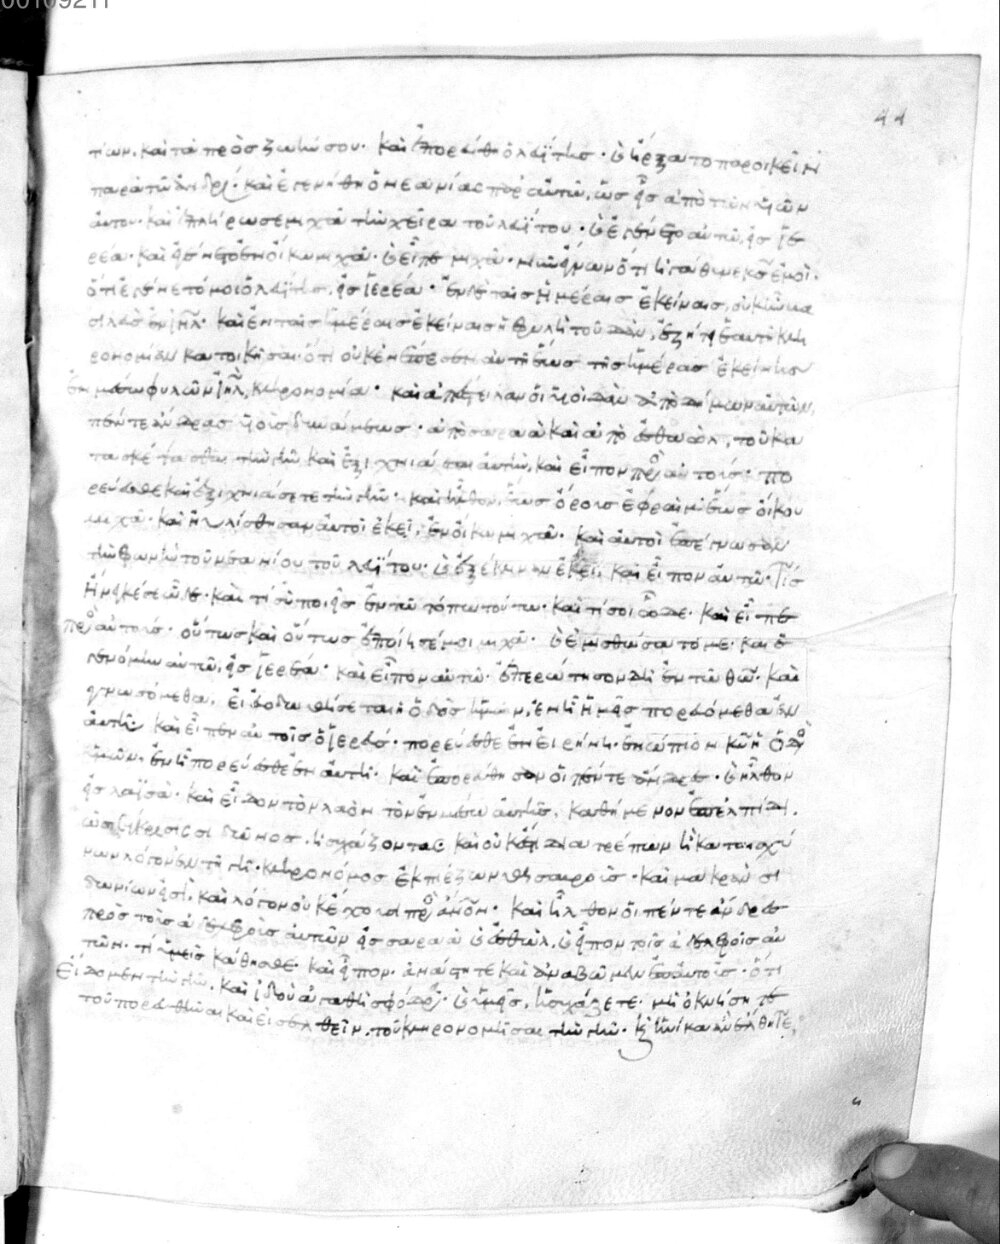 00109211
44
τίων. καὶ τὰ πρὸς ζωήν σου· καὶ ἐπορεύθη ὁ λευΐτης· καὶ ἤρξατο παροικεῖν
παρὰ τῶ ἀνδρί· καὶ ἐγενήθη ὁ νεανίας παρ αὐτῶ, ὡς εἷς ἀπὸ τῶν υἱῶν
αὐτου· καὶ ἐπλήρωσε μιχὰ τὴν χεῖρα τοῦ λευΐτου· καὶ ἐγένετο αὐτῶ εἰς ἱε
ρέα· καὶ ἦν ἐν τῶ οἴκω μιχὰ· καὶ εἶπε μιχὰ· νῦν ἔγνων ὅτι ἠγαθυνε κς ἐμοὶ.
ὅτι ἐγένετό μοι ὁ λευΐτης, εἰς ἱερέα· ἐν δὲ ταῖς ἡμέραις ἐκείναις, οὐκ ἦν βα
σιλεὺς ἐν ιηλ· καὶ ἐν ταῖς ἡμέραις ἐκείναις ἡ φυλὴ τοῦ δὰν, ἐζήτει ἑαυτῆ κλη
ρονομίαν κατοικῆσαι· ὅτι οὐκ ἐνέπεσεν αὐτῆ ἕως τῆς ἡμέρας ἐκείνης
ἐν μέσω φυλῶν ιηλ, κληρονομία· καὶ ἀπέστειλαν οἱ υἱοὶ δὰν ἀπὸ δήμων αὐτῶν,
πέντε ἄνδρας υἱοὺς δυνάμεως· ἀπὸ σαραὰ καὶ ἀπὸ ἐσθαὸλ, τοῦ κα
τασκέψασθαι τὴν γῆν καὶ ἐξιχνιάσαι αὐτὴν, καὶ εἶπον πρὸς αὐτούς· πο
ρεύεσθε καὶ ἐξιχνιάσετε τὴν γῆν· καὶ ἦλθον, ἕως ὄρους ἐφραὶμ ἕως οἴκου
μιχὰ· καὶ ηὐλίσθησαν αὐτοὶ ἐκεῖ, ἐν οἴκω μιχὰ· καὶ αὐτοὶ ἐπέγνωσαν
τὴν φωνὴν τοῦ νεανίου τοῦ λευΐτου· καὶ ἐξέκλιναν ἐκεῖ, καὶ εἶπον αὐτῶ· τίς
ἤνεγκέ σε ὧδε· καὶ τί σὺ ποιεῖς ἐν τῶ τόπω τούτω· καὶ τί σοι ὧδε· καὶ εἶπε
πρὸς αὐτούς· οὕτως καὶ οὕτως ἐποίησέ μοι μιχὰ· καὶ ἐμισθώσατό με· καὶ ἐ
γενόμην αὐτῶ, εἰς ἱερέα· καὶ εἶπον αὐτῶ· ἐπερώτησον δὴ ἐν τῶ θω· καὶ
γνωσόμεθα, εἰ εὐοδωθήσεται ἡ ὁδὸς ἡμῶν, ἐν ἧ ἡμεῖς πορευόμεθα ἐν
αὐτῆ· καὶ εἶπεν αὐτοῖς ὁ ἱερεύς· πορεύεσθε ἐν εἰρήνη· ἐνώπιον κυ ἡ ὁδὸς
ὑμῶν. ἐν ἧ πορεύεσθε ἐν αὐτῆ· καὶ ἐπορεύθησαν οἱ πέντε ἄνδρες· καὶ ἦλθον
εἰς λαϊσὰ· καὶ εἶδον τὸν λαὸν τὸν ἐν μέσω αὐτῆς, καθήμενον ἐπ ἐλπίδι.
ὡς ἡ κρίσις σιδωνος. ἡσυχάζοντας καὶ οὐκ ἔστι διατρέπων ἢ καταισχύ
νων λόγον ἐν τῆ γῆ· κληρονόμος ἐκπιέζων θησαυροῦς· καὶ μακρὰν σι
δωνίων εἰσὶ. καὶ λόγον οὐκ ἔχουσι πρὸς ἄνον· καὶ ἦλθον οἱ πέντε ἄνδρες
πρὸς τοὺς ἀδελφοὺς αὐτῶν εἰς σαραὰ καὶ ἐσθαὸλ, καὶ εἶπον τοῖς ἀδελφοῖς αὐ
τῶν· τί ὑμεῖς κάθησθε· καὶ εἶπον. ἀνάστητε καὶ ἀναβῶμεν ἐπ αὐτούς· ὅτι
εἴδομεν τὴν γῆν, καὶ ἰδοὺ ἀγαθὴ σφόδρα· καὶ ὑμεῖς, ἡσυχάζετε· μὴ ὀκνήσητε
τοῦ πορευθῆναι καὶ εἰσελθεῖν. τοῦ κληρονομῆσαι τὴν γῆν· καὶ ἡνίκα ἂν ἔλθητε,